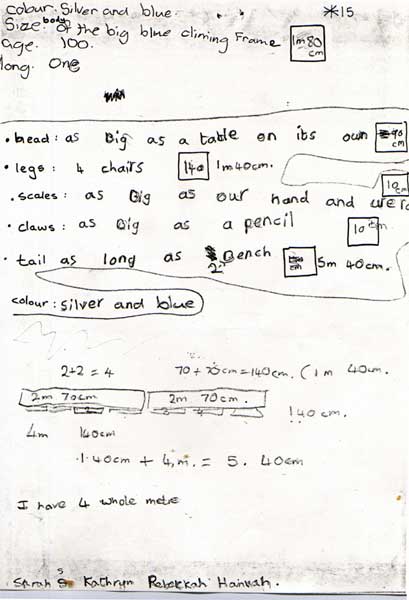 colour: Silver and blue. *15
Size: body of the big blue climing Frame 1m 80 cm
age. 100.
long. One
• head: as Big as a table on its own 90 cm
• legs: 4 chairs 140 1m 40cm.
• scales: as Big as our hand and 10cm
• claws: as Big as a pencil 10cm
• tail as long as 2 Bench 5m 40cm.
colour: silver and blue
2+2 = 4 70 + 70cm = 140cm. (1m 40cm.
2m 70cm 2m 70cm. 140cm.
4m 140cm
1.40cm + 4,m. = 5.40cm
I have 4 whole metre
Sarah S. Kathryn Rebekkah Hannah.